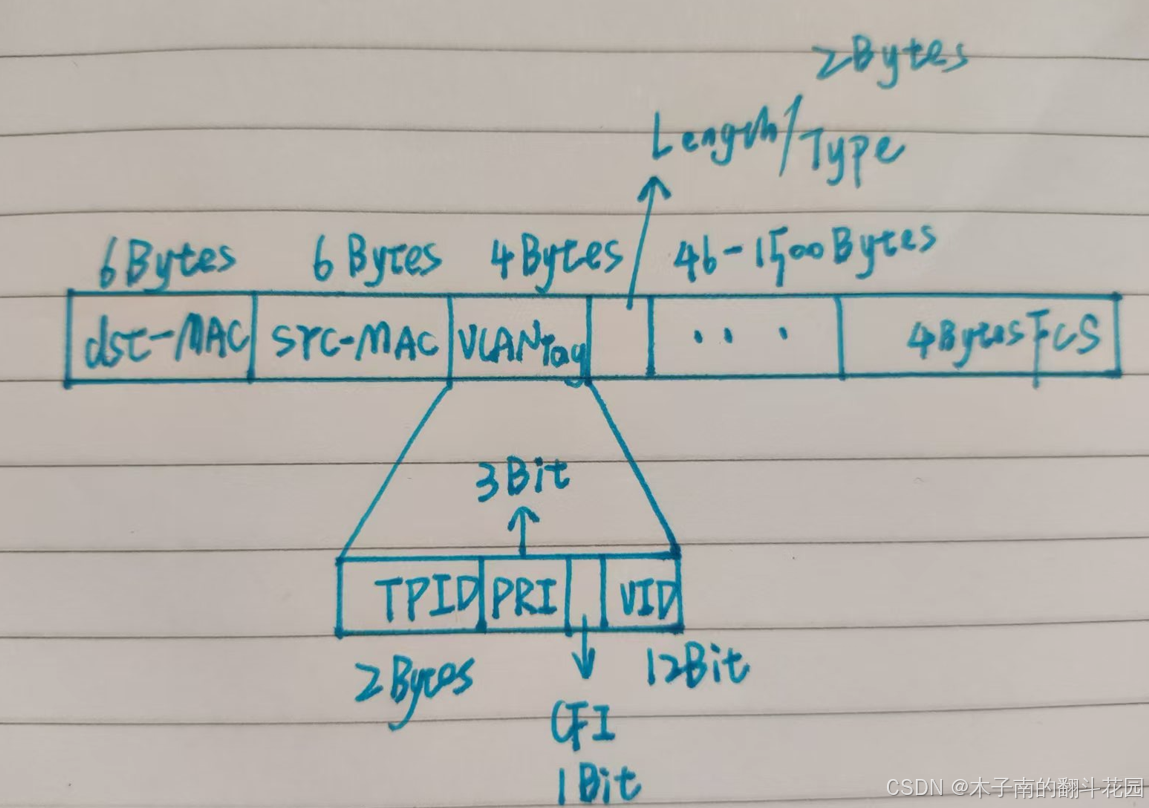 2Bytes
Length/Type
6Bytes 6Bytes 4Bytes 46-1500Bytes
dst-MAC src-MAC VLANTag ... 4BytesFCS
3Bit
TPID PRI VID
2Bytes 12Bit
CFI
1Bit
CSDN @木子南的翻斗花园